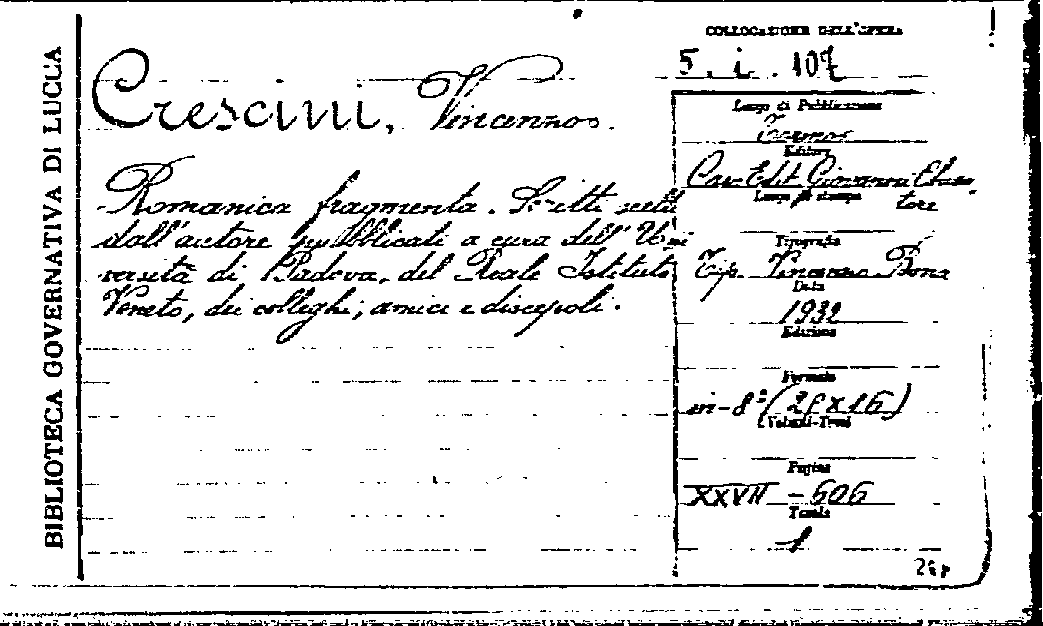 BIBLIOTECA GOVERNATIVA DI LUCCA
COLLOCAZIONE DELL'OPERA
5. i. 107
Crescini, Vincenzo.
Romanica fragmenta. Scritti scelti
dall'autore pubblicati a cura dell'Uni
versità di Padova, del Reale Istituto
Veneto, dei colleghi, amici e discepoli.
Luogo di Pubblicazione
Editore
Casa Edit. Giovanni
tore
Luogo di stampa
Tipografia
Tip. Vincenzo Bona
Data
1932
Edizione
Formato
in-8° (25x16)
Volumi-Tomi
Pagine
XXVII - 606
Tavole
1